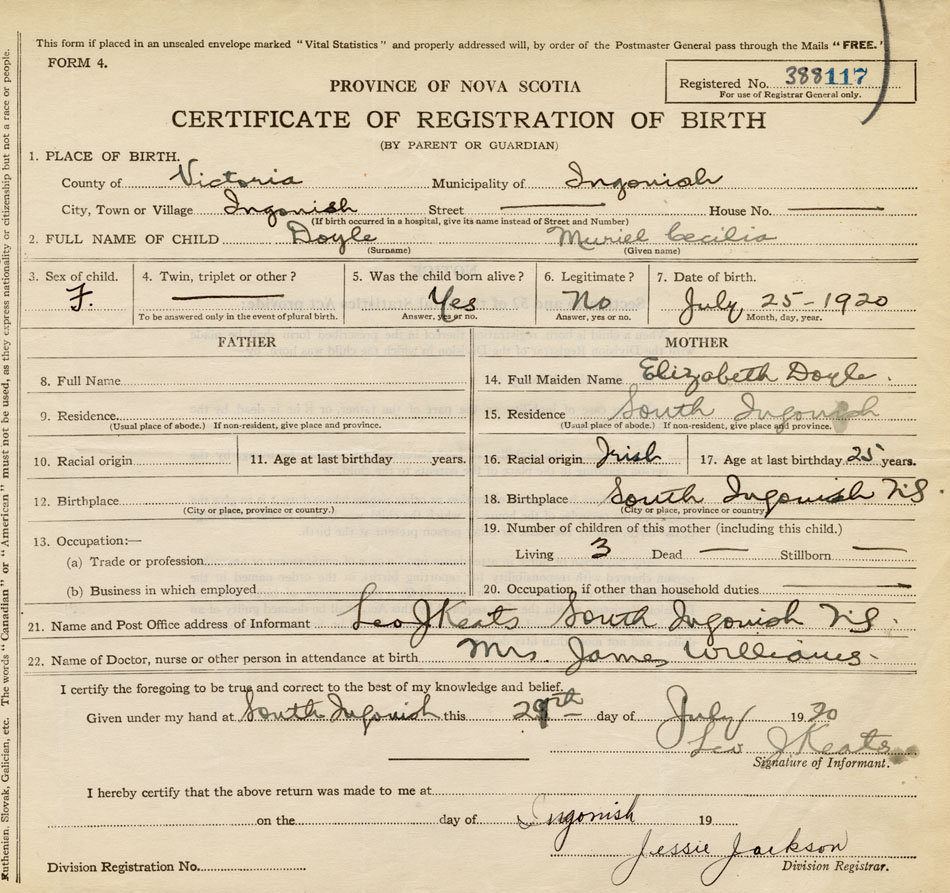 This form if placed in an unsealed envelope marked "Vital Statistics" and properly addressed will, by order of the Postmaster General pass through the Mails "FREE."
FORM 4.
Registered No. 388117
For use of Registrar General only.
PROVINCE OF NOVA SCOTIA
CERTIFICATE OF REGISTRATION OF BIRTH
(BY PARENT OR GUARDIAN)
1. PLACE OF BIRTH.
County of Victoria Municipality of Ingonish
City, Town or Village Ingonish Street House No.
(If birth occurred in a hospital, give its name instead of Street and Number)
2. FULL NAME OF CHILD Doyle Muriel Cecilia
(Surname) (Given name)
3. Sex of child. 4. Twin, triplet or other? 5. Was the child born alive? 6. Legitimate? 7. Date of birth.
F. Yes No July 25-1920
To be answered only in the event of plural birth. Answer, yes or no. Answer, yes or no. Month, day, year.
FATHER MOTHER
8. Full Name 14. Full Maiden Name Elizabeth Doyle.
9. Residence. 15. Residence South Ingonish
(Usual place of abode.) If non-resident, give place and province. (Usual place of abode.) If non-resident, give place and province.
10. Racial origin 11. Age at last birthday years. 16. Racial origin Irish 17. Age at last birthday 25 years.
12. Birthplace 18. Birthplace South Ingonish N.S.
(City or place, province or country.) (City or place, province or country.)
13. Occupation:— 19. Number of children of this mother (including this child.)
(a) Trade or profession Living 3 Dead — Stillborn —
(b) Business in which employed 20. Occupation, if other than household duties
21. Name and Post Office address of Informant Leo J Keats South Ingonish N.S.
22. Name of Doctor, nurse or other person in attendance at birth Mrs. James Williams.
I certify the foregoing to be true and correct to the best of my knowledge and belief.
Given under my hand at South Ingonish this 29th day of July 1920
Leo J Keats
Signature of Informant.
I hereby certify that the above return was made to me at
on the day of Ingonish 19
Jessie Jackson
Division Registration No. Division Registrar.
Ruthenian, Slovak, Galician, etc. The words "Canadian" or "American" must not be used, as they express nationality or citizenship but not a race or people.